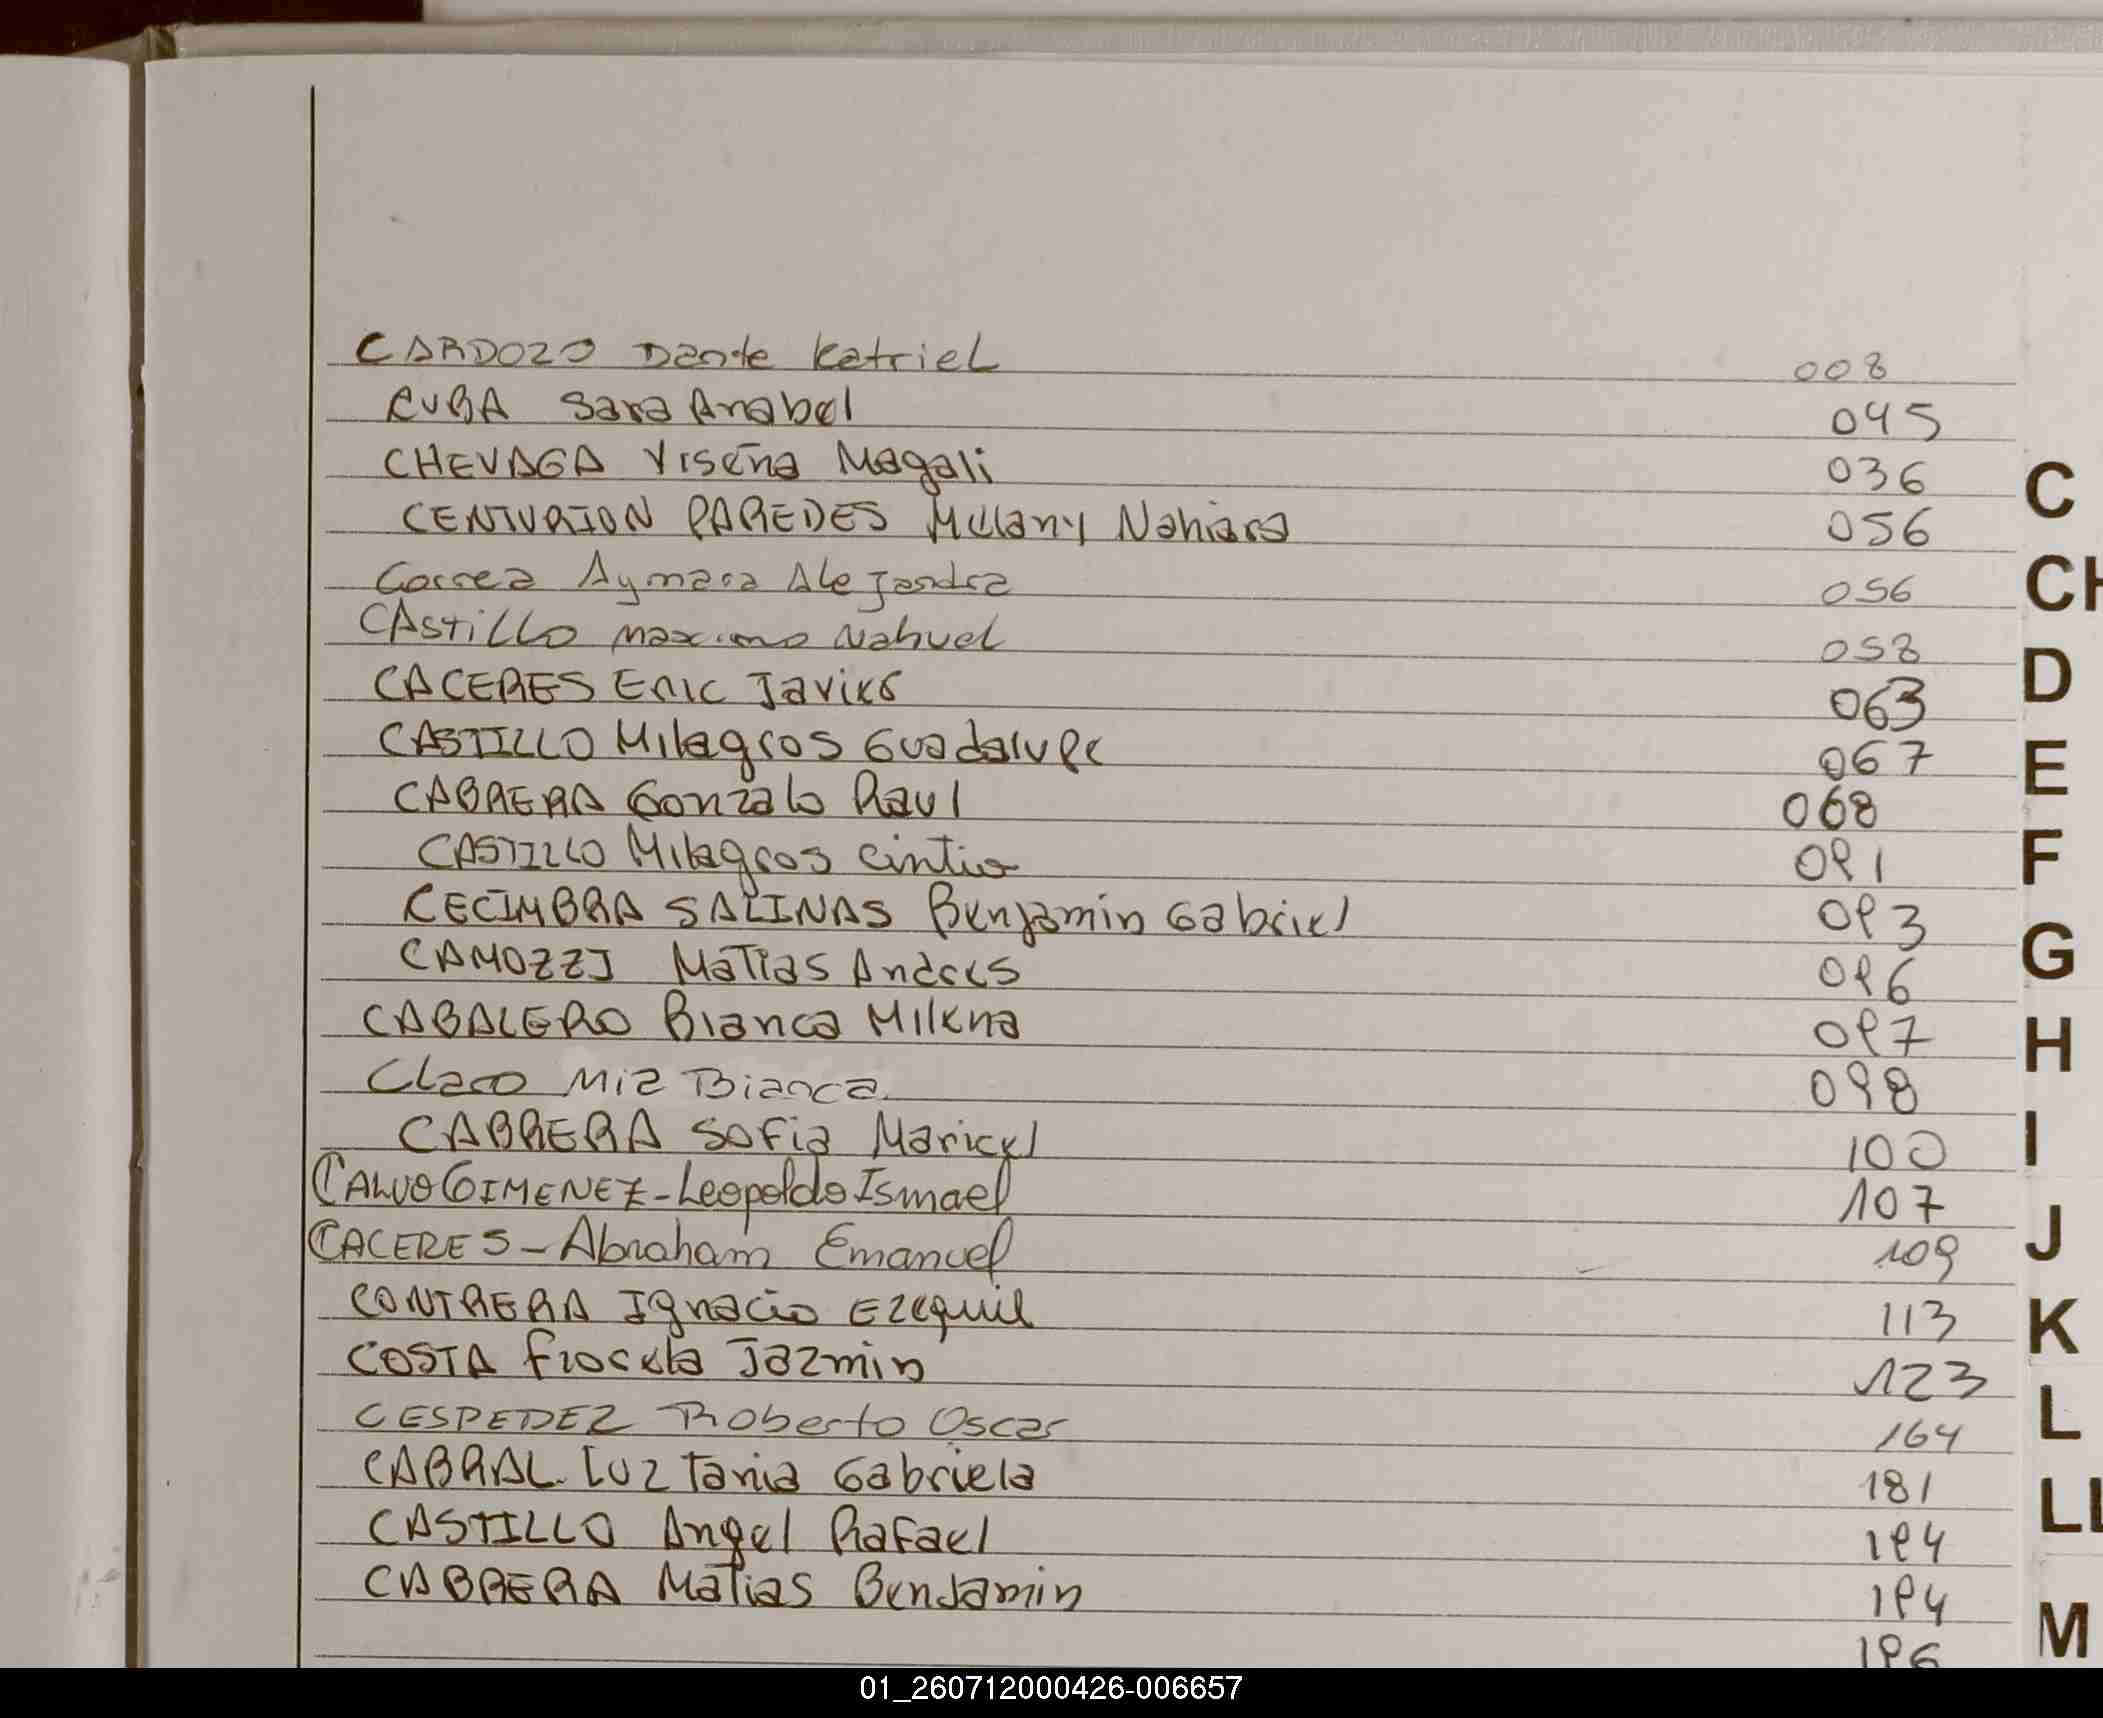 CARDOZO Dante Katriel 008
CUBA Sara Anabel 045
CHEVAGA Yiseña Magali 036
CENTURION PAREDES Melany Nahiara 056
Correa Aymara Alejandra 056
CAstiLLo maximo Nahuel 058
CACERES Eric Javier 063
CASTILLO Milagros Guadalupe 067
CABRERA Gonzalo Raul 068
CASTILLO Milagros Cintia 091
CECIMBRA SALINAS Benjamin Gabriel 093
CAMOZZI Matias Andres 096
CABALERO Bianca Milena 097
Claro Mia Bianca 098
CABRERA Sofia Maricel 100
CALVO GIMENEZ-Leopoldo Ismael 107
CACERES-Abraham Emanuel 109
CONTRERA Ignacio Ezequiel 113
COSTA Fiorela Jazmin 123
CESPEDEZ Roberto Oscar 164
CABRAL Luz Tania Gabriela 181
CASTILLO Angel Rafael 194
CABRERA Matias Benjamin 194
196
C
CH
D
E
F
G
H
I
J
K
L
LL
M
01_260712000426-006657